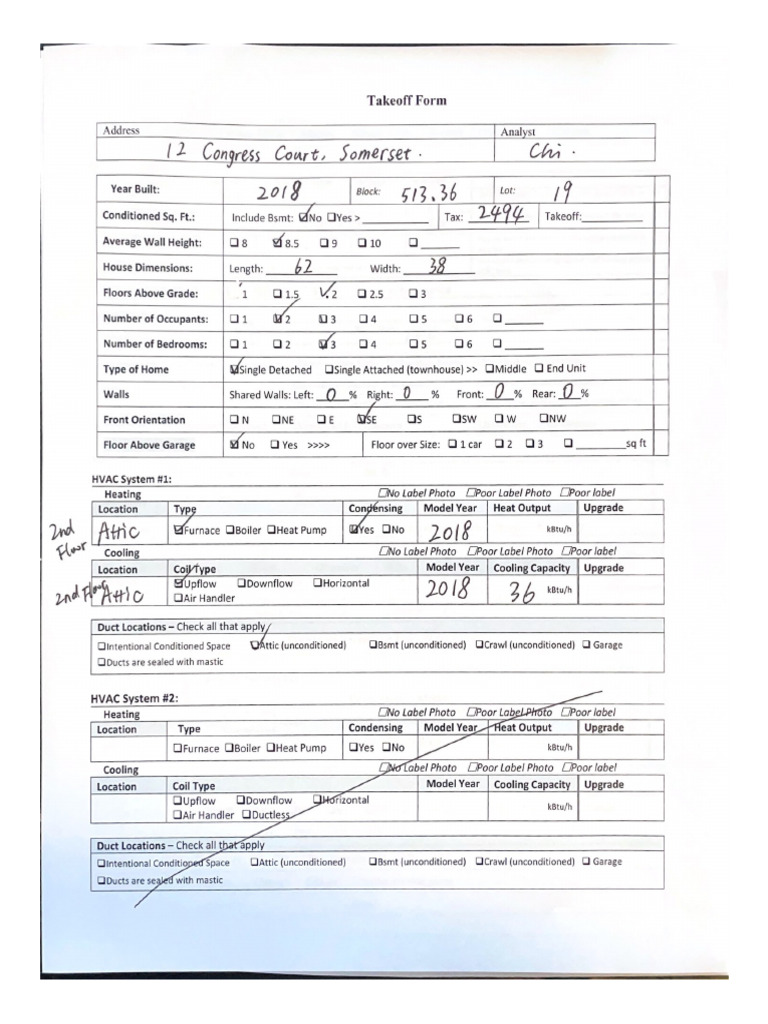 Takeoff Form
Address Analyst
12 Congress Court, Somerset. Chi.
Year Built: 2018 Block: 513.36 Lot: 19
Conditioned Sq. Ft.: Include Bsmt: ☑No ☐Yes > ________ Tax: 2494 Takeoff:________
Average Wall Height: ☐ 8 ☑ 8.5 ☐ 9 ☐ 10 ☐ ______
House Dimensions: Length: 62 Width: 38
Floors Above Grade: 1 ☐ 1.5 ✓ 2 ☐ 2.5 ☐ 3
Number of Occupants: ☐ 1 ☑ 2 ☐ 3 ☐ 4 ☐ 5 ☐ 6 ☐ ______
Number of Bedrooms: ☐ 1 ☐ 2 ☑ 3 ☐ 4 ☐ 5 ☐ 6 ☐ ______
Type of Home ☑Single Detached ☐Single Attached (townhouse) >> ☐Middle ☐ End Unit
Walls Shared Walls: Left: 0 % Right: 0 % Front: 0 % Rear: 0 %
Front Orientation ☐ N ☐NE ☐ E ☑SE ☐S ☐SW ☐ W ☐NW
Floor Above Garage ☑ No ☐ Yes >>>> Floor over Size: ☐ 1 car ☐ 2 ☐ 3 ☐ ________sq ft
HVAC System #1:
Heating ☐No Label Photo ☐Poor Label Photo ☐Poor label
Location Type Condensing Model Year Heat Output Upgrade
2nd Floor Attic ☑Furnace ☐Boiler ☐Heat Pump ☑Yes ☐No 2018 kBtu/h
Cooling ☐No Label Photo ☐Poor Label Photo ☐Poor label
Location Coil Type Model Year Cooling Capacity Upgrade
2nd Floor Attic ☑Upflow ☐Downflow ☐Horizontal 2018 36 kBtu/h
☐Air Handler
Duct Locations – Check all that apply
☐Intentional Conditioned Space ☑Attic (unconditioned) ☐Bsmt (unconditioned) ☐Crawl (unconditioned) ☐ Garage
☐Ducts are sealed with mastic
HVAC System #2:
Heating ☐No Label Photo ☐Poor Label Photo ☐Poor label
Location Type Condensing Model Year Heat Output Upgrade
☐Furnace ☐Boiler ☐Heat Pump ☐Yes ☐No kBtu/h
Cooling ☐No Label Photo ☐Poor Label Photo ☐Poor label
Location Coil Type Model Year Cooling Capacity Upgrade
☐Upflow ☐Downflow ☐Horizontal kBtu/h
☐Air Handler ☐Ductless
Duct Locations – Check all that apply
☐Intentional Conditioned Space ☐Attic (unconditioned) ☐Bsmt (unconditioned) ☐Crawl (unconditioned) ☐ Garage
☐Ducts are sealed with mastic